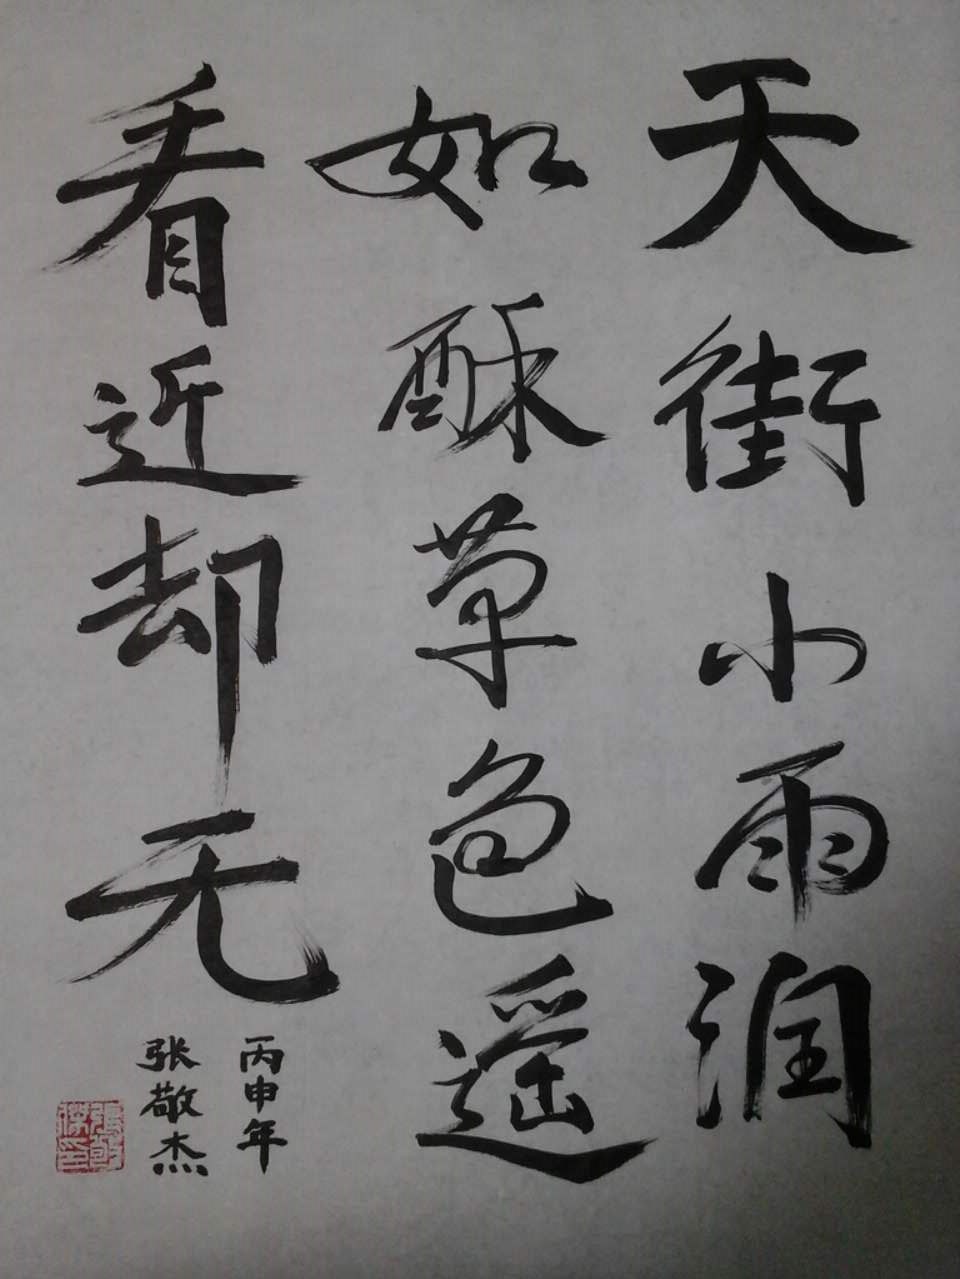 天街小雨润
如酥草色遥
看近却无
丙申年
张敬杰